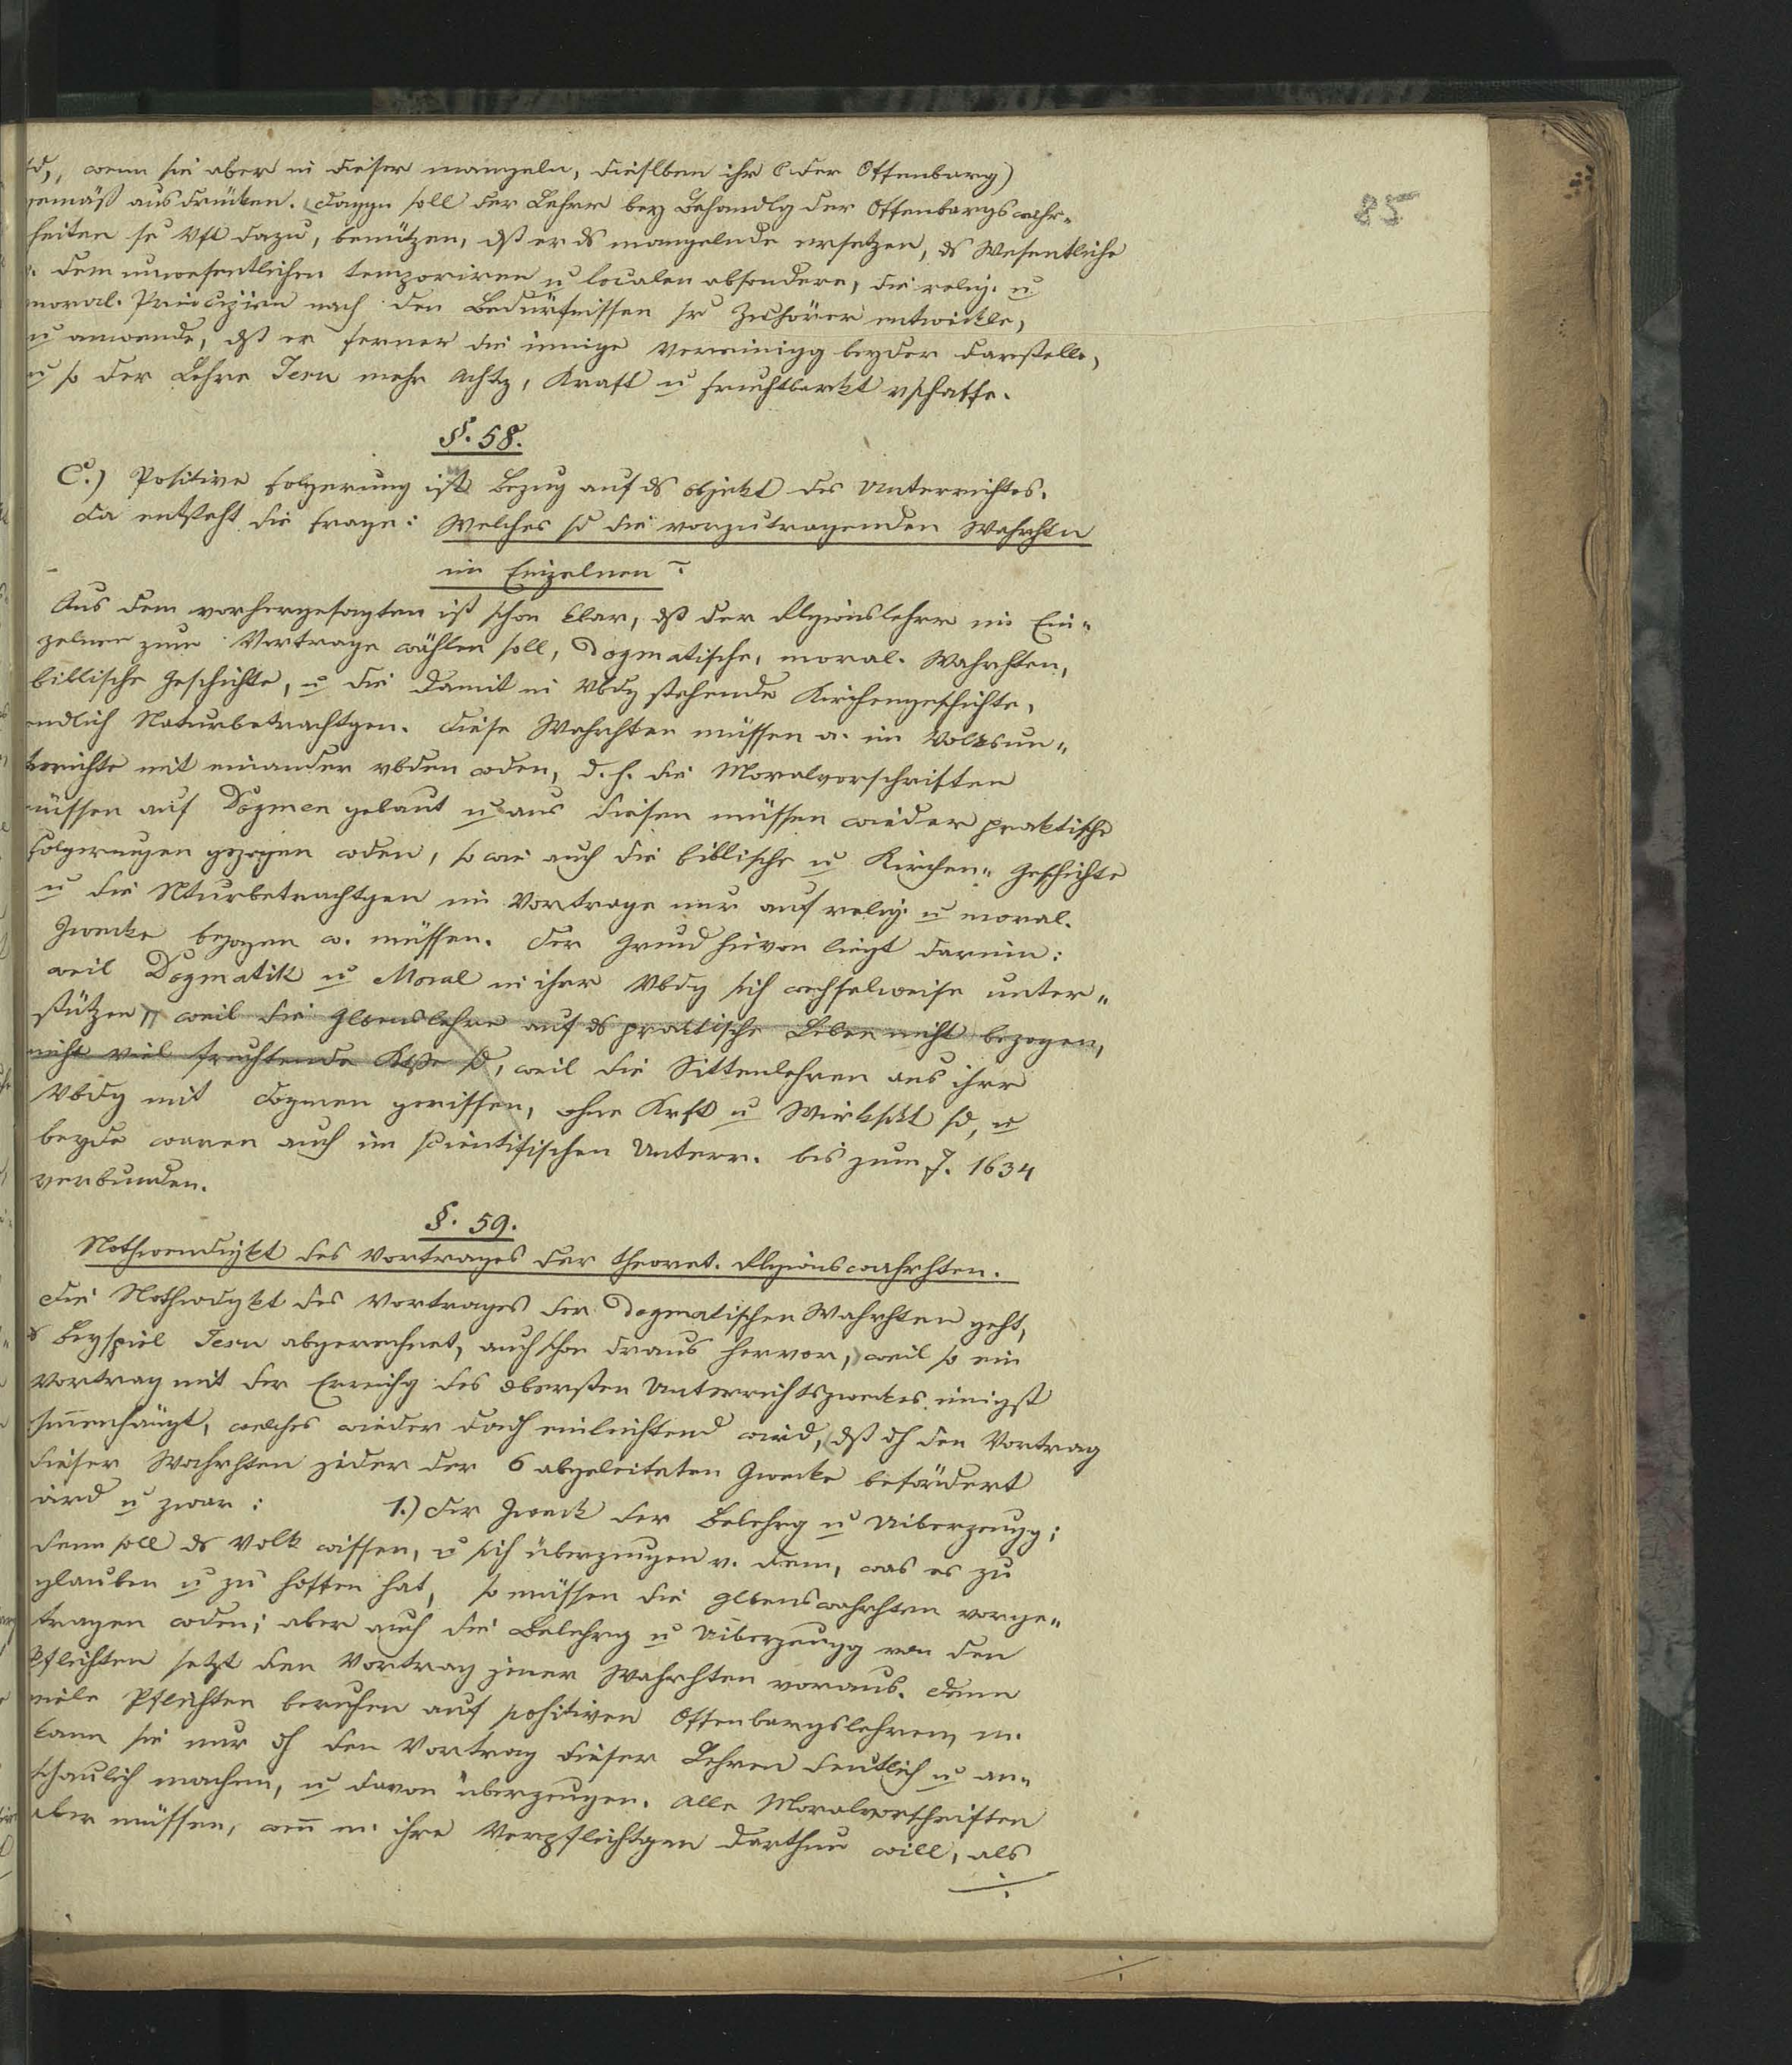 85
sd, wenn sie aber in dieser mangeln, dieselben ihr (der Offenbarg)
gemäß ausdrüken. Daggn soll der Lehrer bey Behandlg der Offenbargswahr-
heiten se Vft dazu, benützen, dß er ds mangelnde ersetzen, ds Wesentliche
v. dem unwesentlichen temporiren u localen absondere, die relig. u
moral. Principien nach den Bedürfnissen sr Zuhörer entwickle,
u anwende, dß er ferner die innige Vereinigg beyder darstelle,
u so der Lehre Jesu mehr Achtg, Kraft u Fruchtbarkt vschaffe.
§. 58.
C.) Positive Folgerung in Bezug auf ds Objekt des Unterrichtes.
Da entsteht die Frage: Welches sd die vorzutragenden Wahrhtn
im Einzelnen?
Aus dem vorhergesagten ist schon klar, dß der Rlgionslehrer im Ein-
zelnen zum Vortrage wählen soll, Dogmatische, moral. Wahrhten,
biblische Geschichte, u die damit in Vbdg stehende Kirchengeschichte,
endlich Naturbetrachtgen. Diese Wahrhten müssen a. im Volksun-
terrichte mit einander vbden wden, d. h. die Moralvorschriften
müssen auf Dogmen gebaut u aus diesen müssen wieder praktische
Folgerungen gezogen wden, so wie auch die biblische u Kirchen- Geschichte
u die Nturbetrachtgen im Vortrage nur auf relig. u moral.
Zwecke bezogen w. müssen. Der Grund hievon liegt darinn:
weil Dogmatik u Moral in ihrer Vbdg sich wechselweise unter-
stützen, weil die Glbenslehre auf ds praktische Leben nicht bezogen,
nicht viel fruchtende sd, weil die Sittenlehren aus ihrer
Vbdg mit Dogmen gerissen, ohne Krft u Wirkskt sd, u
beyde waren auch im scientifischen Unterr. bis zum J. 1634
verbunden.
§. 59.
Nothwendigkt des Vortrages der theoret. Rlgionswahrhten.
Die Nothwdgkt des Vortrages der Dogmatischen Wahrhten geht,
ds Beyspiel Jesu abgerechnet, auch schon draus hervor, weil so ein
Vortrag mit der Erreichg des obersten Unterrichtszweckes innigst
smenhängt, welches wieder dadh einleuchtend wird, dß dh den Vortrag
dieser Wahrhten jeder der 6 abgeleiteten Zwecke befördert
wird u zwar: 1.) Der Zweck der Belehrg u Uiberzeugg;
denn soll ds Volk wissen, u sich überzeugen v. dem, was es zu
glauben u zu hoffen hat, so müssen die Glbenswahrhten vorge-
tragen wden; aber auch die Belehrg u Uiberzeugg von den
Pflichten setzt den Vortrag jener Wahrhten voraus. Denn
viele Pflichten beruhen auf positiven Offenbargslehren, m.
kann sie nur dh den Vortrag dieser Lehren deutlich u an-
schaulich machen, u davon überzeugen. Alle Moralvorschriften
aber müssen, wen m. ihre Verpflichtgen darthun will, als